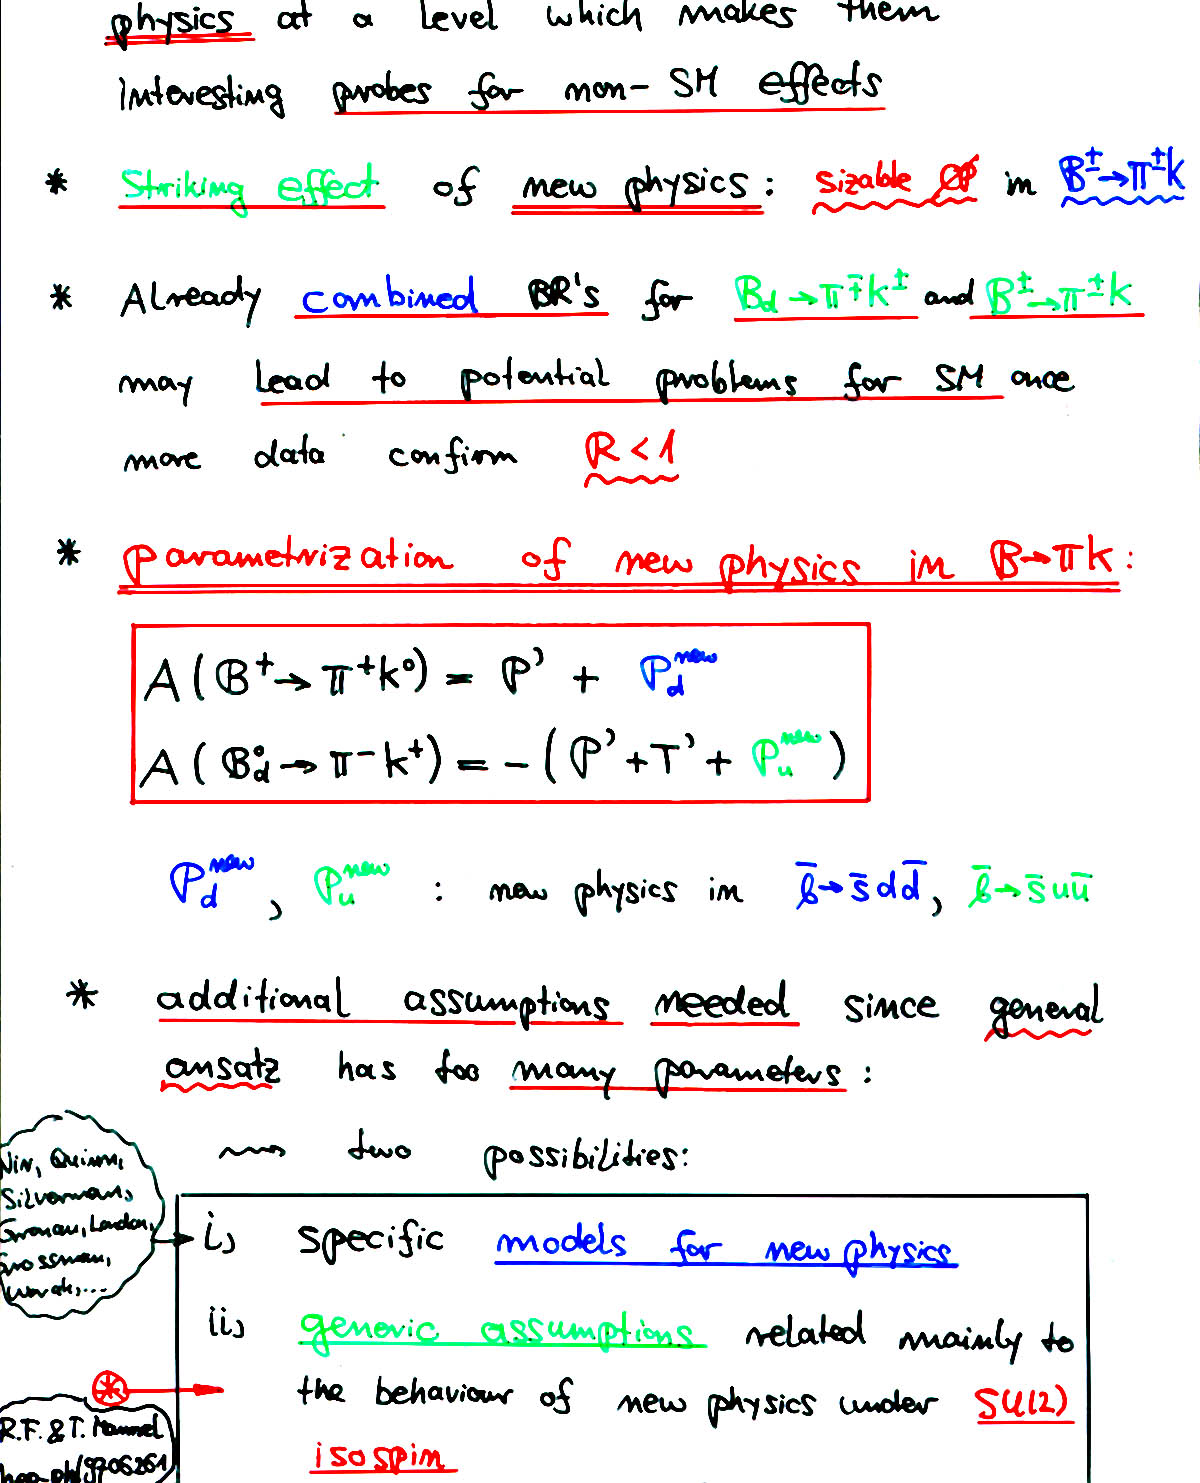 physics at a level which makes them
interesting probes for non-SM effects
* Striking effect of new physics: sizable C̸P̸ in B±→π±K
* Already combined BR's for Bd→π∓K± and B±→π±K
may lead to potential problems for SM once
more data confirm R<1
* parametrization of new physics in B→πK:
A(B⁺→π⁺K⁰) = P' + P_d^new
A(B_d⁰→π⁻K⁺) = -(P'+T'+P_u^new)
P_d^new, P_u^new : new physics in b̄→s̄dd̄, b̄→s̄uū
* additional assumptions needed since general
ansatz has too many parameters:
⇝ two possibilities:
Nir, Quinn,
Silverman,
Gronau, London,
Grossman,
Worah,...
i) specific models for new physics
ii) generic assumptions related mainly to
the behaviour of new physics under SU(2)
isospin
⊛→
R.F. & T. Mannel
hep-ph/9706261